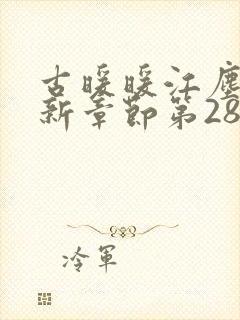 古暖暖江塵
新章節第28
冷軍